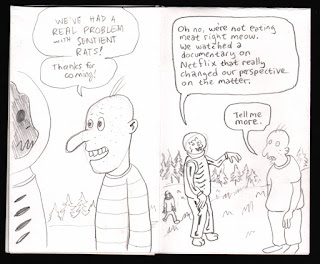 WE'VE HAD A
REAL PROBLEM
WITH SENTIENT
RATS!
Thanks for
coming!
Oh no, we're not eating
meat right meow.
We watched a
documentary on
Netflix that really
changed our perspective
on the matter.
Tell me
more.